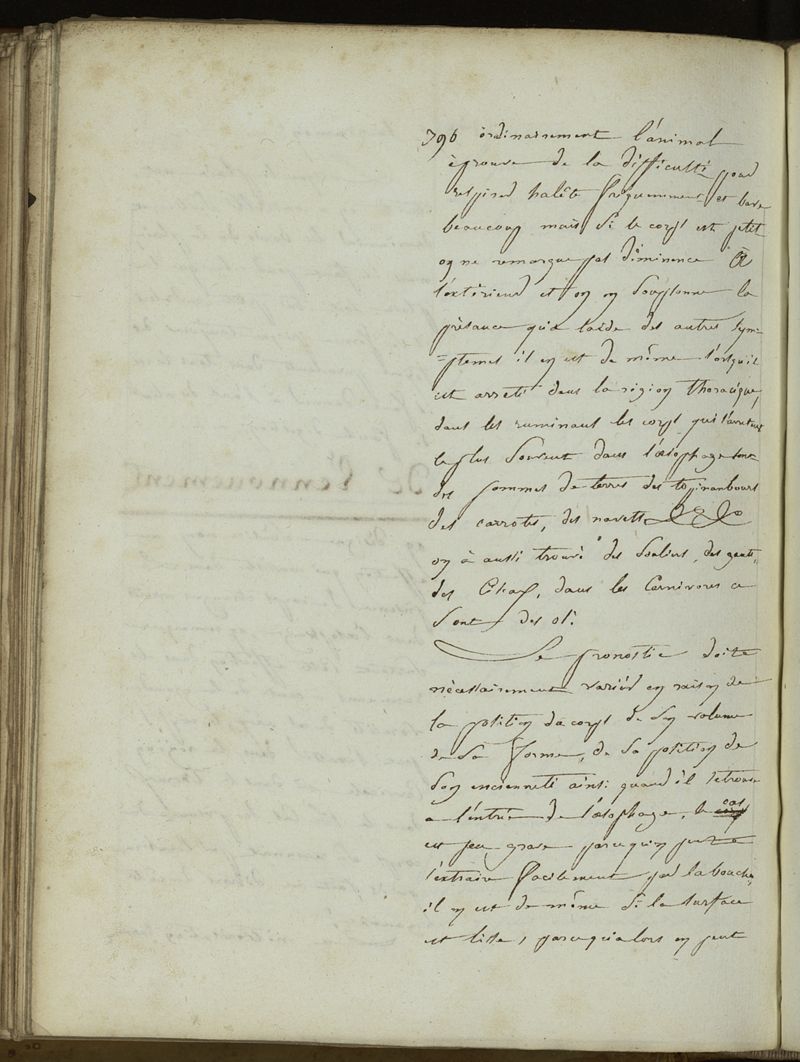 796 ordinairement l'animal
éprouve de la difficulté pour
respirer halête fréquemment et bave
beaucoup mais si le corps est petit
on ne remarque pas d'éminence à
l'extérieur et on en soupçonne la
présance qu'a laide des autres sym=
=ptemes il en est de même lorsqu'il
est arreté dans la région thoracique,
dans les ruminans les corps qui s'arretent
le plus souvent dans l'œsophage sont
des pommes de terres des topinambours
des carrotes, des navets
on à aussi trouvé des souliers, des gants,
des, dans les Carnivores ce
sont des os.
Le pronostic doite
nécessairement varier en raison de
la position du corps de son volume
de sa forme, de sa position de
son encienneté ainsi quand il se trouve
a l'entrée de l'œsophage, le cas
est peu grave parcequ'on peut
l'extraire facilement par la bouche,
il en est de même si la surface
est lisse, parcequ'alors on peut
De l'ennouement